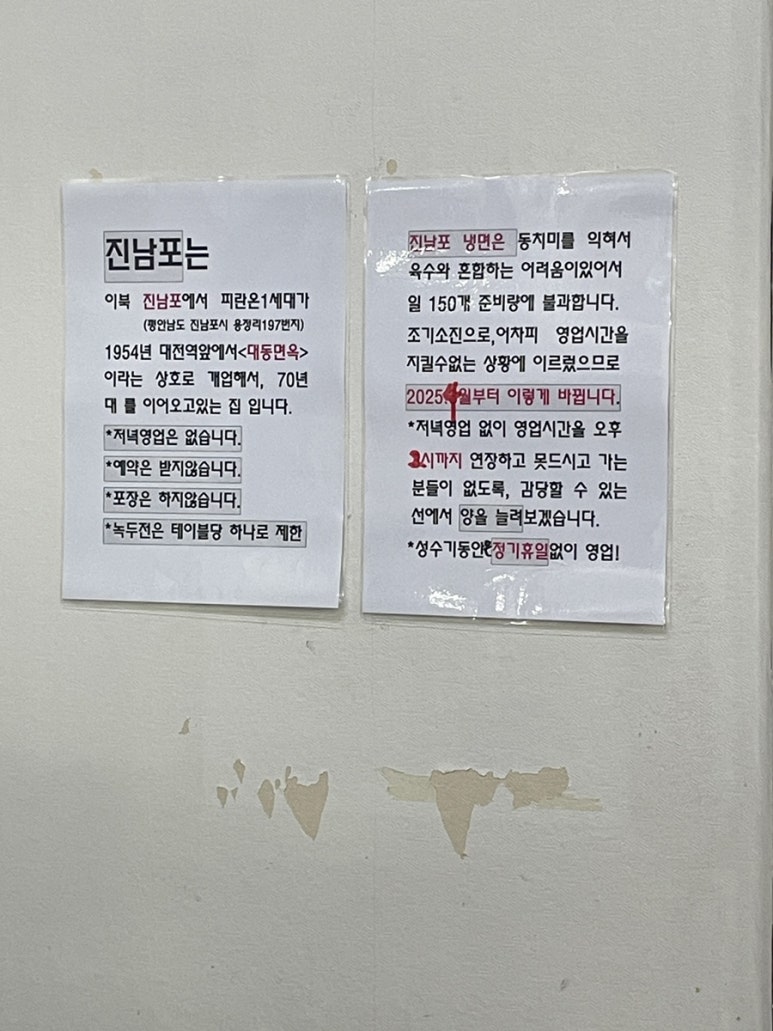 진남포는
이북 진남포에서 피란온1세대가
(평안남도 진남포시 용정리197번지)
1954년 대전역앞에서<대동면옥>
이라는 상호로 개업해서, 70년
대 를 이어오고있는 집 입니다.
*저녁영업은 없습니다.
*예약은 받지않습니다.
*포장은 하지않습니다.
*녹두전은 테이블당 하나로 제한
진남포 냉면은 동치미를 익혀서
육수와 혼합하는 어려움이있어서
일 150개 준비량에 불과합니다.
조기소진으로,어차피 영업시간을
지킬수없는 상황에 이르렀으므로
2025.4월부터 이렇게 바뀝니다.
*저녁영업 없이 영업시간을 오후
3시까지 연장하고 못드시고 가는
분들이 없도록, 감당할 수 있는
선에서 양을 늘려보겠습니다.
*성수기동안 정기휴일없이 영업!